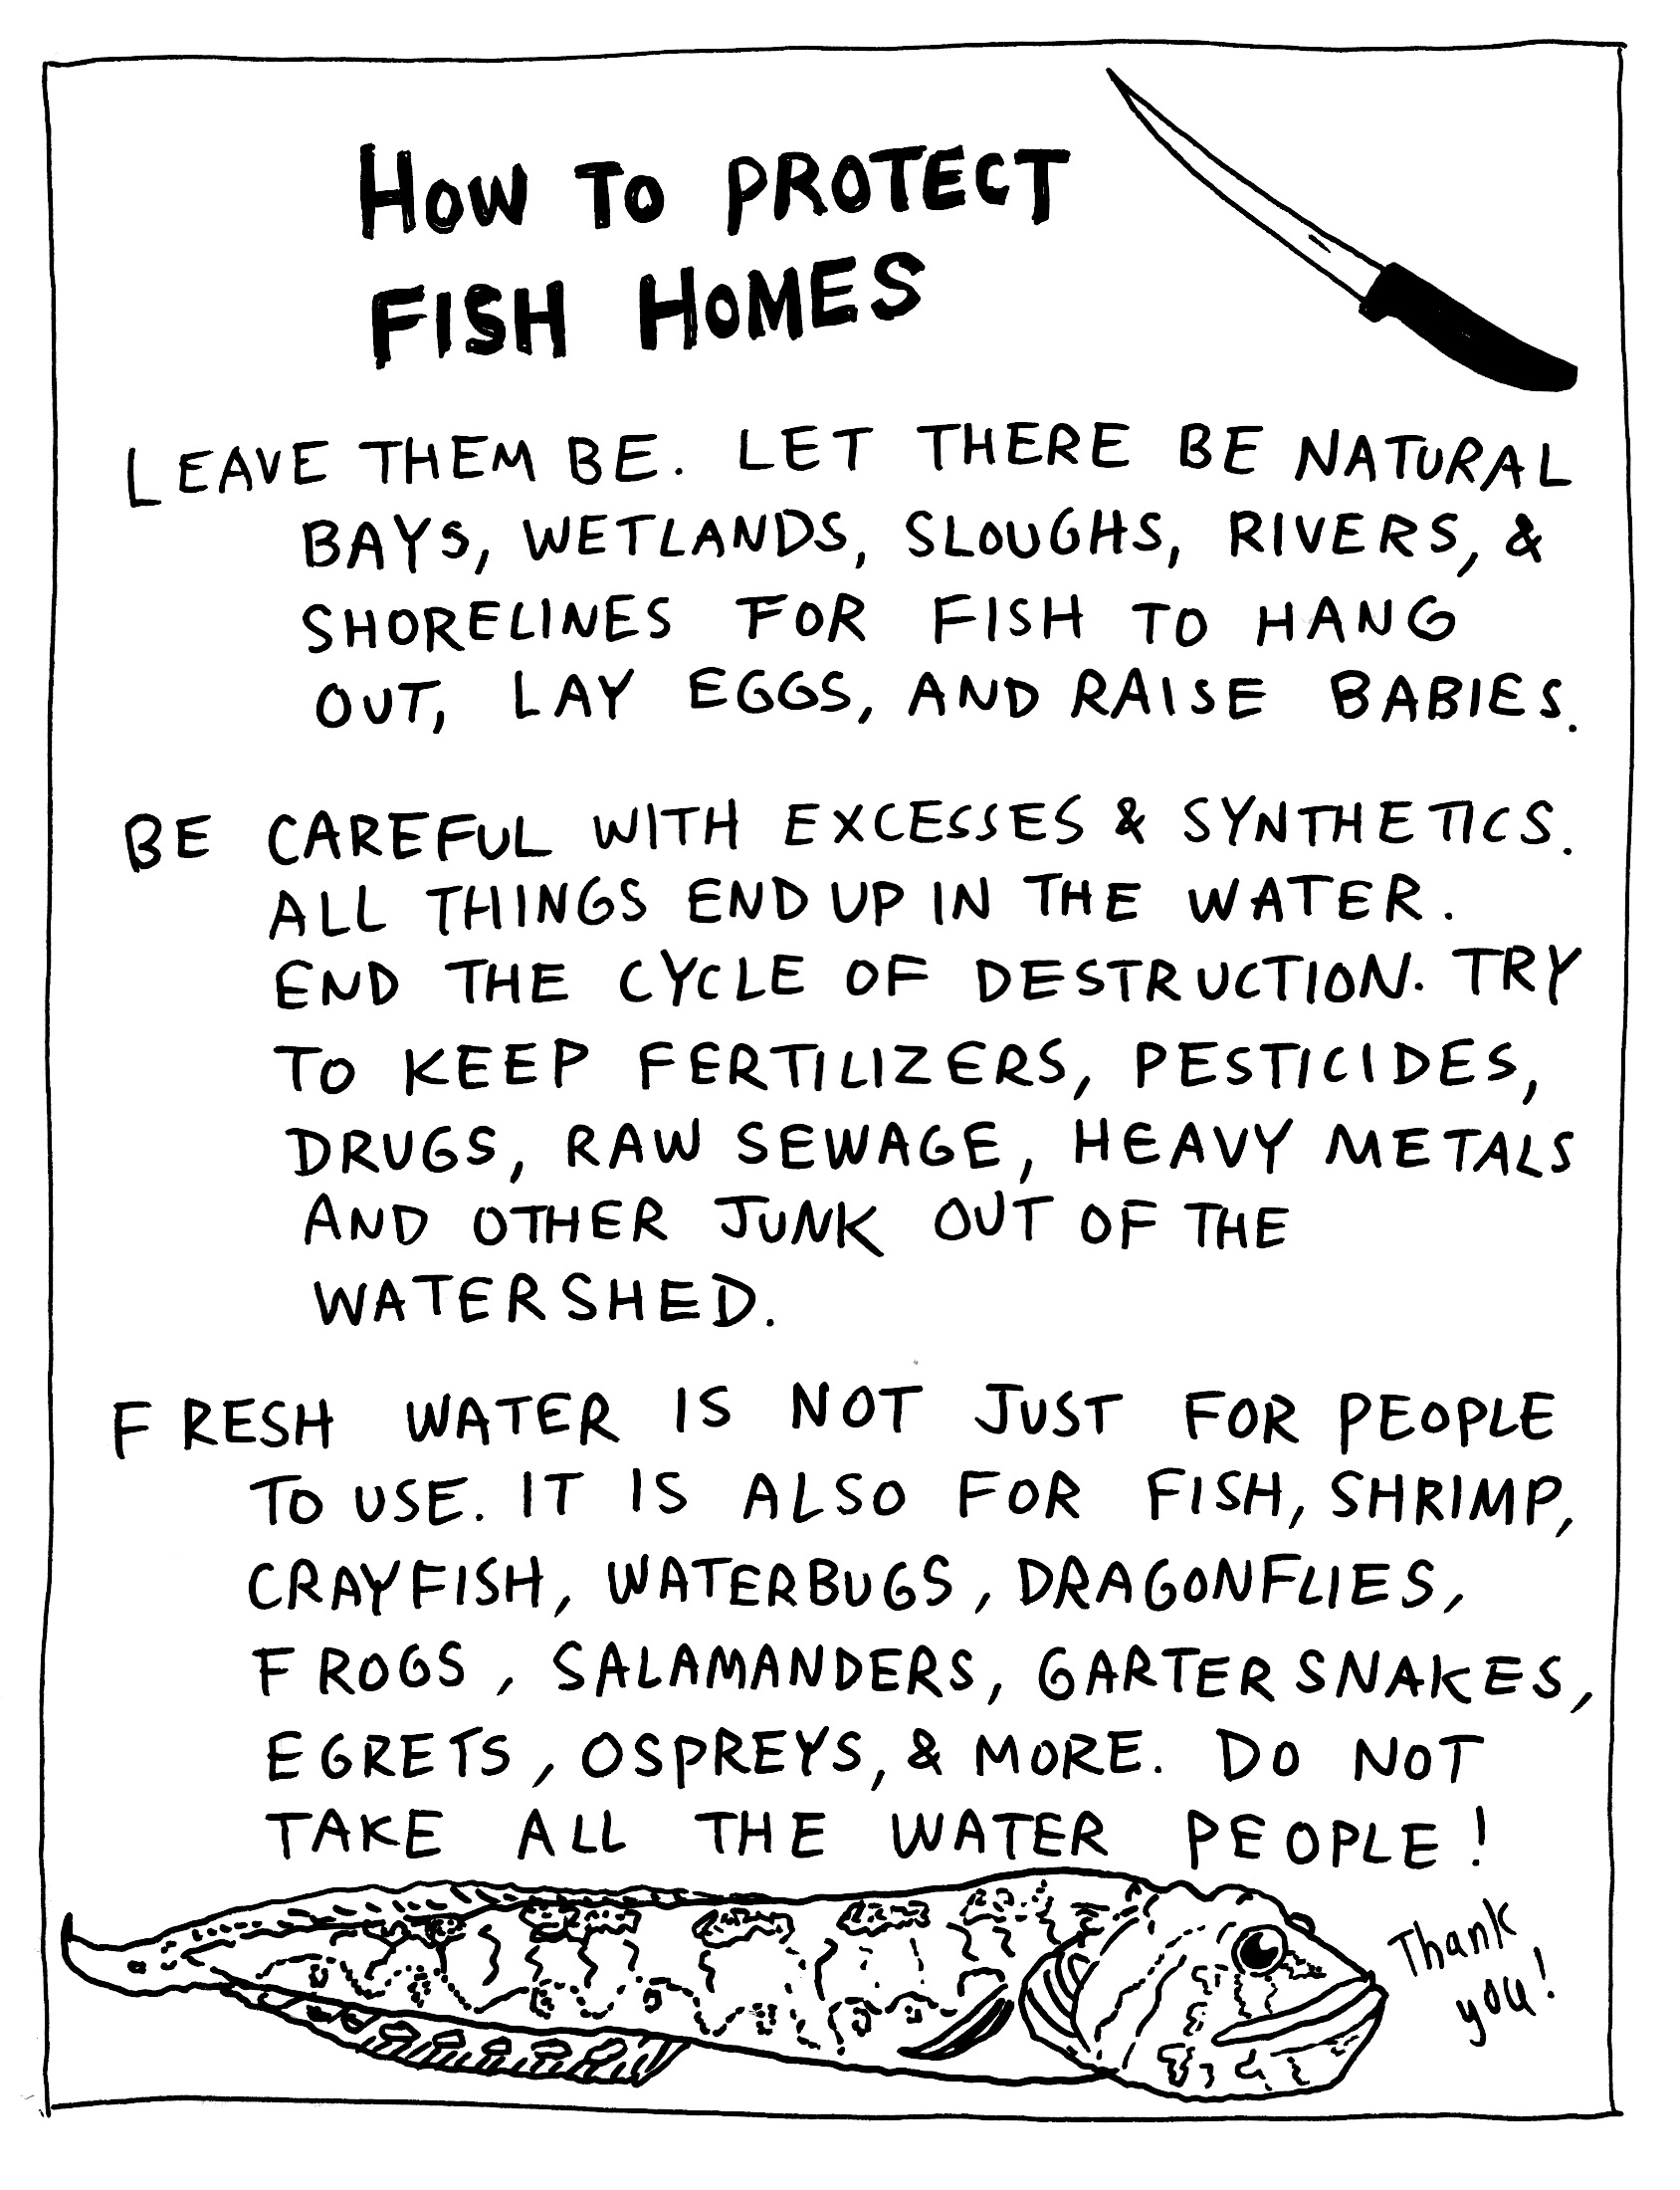 HOW TO PROTECT
FISH HOMES
LEAVE THEM BE. LET THERE BE NATURAL
BAYS, WETLANDS, SLOUGHS, RIVERS, &
SHORELINES FOR FISH TO HANG
OUT, LAY EGGS, AND RAISE BABIES.
BE CAREFUL WITH EXCESSES & SYNTHETICS.
ALL THINGS END UP IN THE WATER.
END THE CYCLE OF DESTRUCTION. TRY
TO KEEP FERTILIZERS, PESTICIDES,
DRUGS, RAW SEWAGE, HEAVY METALS
AND OTHER JUNK OUT OF THE
WATERSHED.
FRESH WATER IS NOT JUST FOR PEOPLE
TO USE. IT IS ALSO FOR FISH, SHRIMP,
CRAYFISH, WATERBUGS, DRAGONFLIES,
FROGS, SALAMANDERS, GARTER SNAKES,
EGRETS, OSPREYS, & MORE. DO NOT
TAKE ALL THE WATER PEOPLE!
Thank
you!